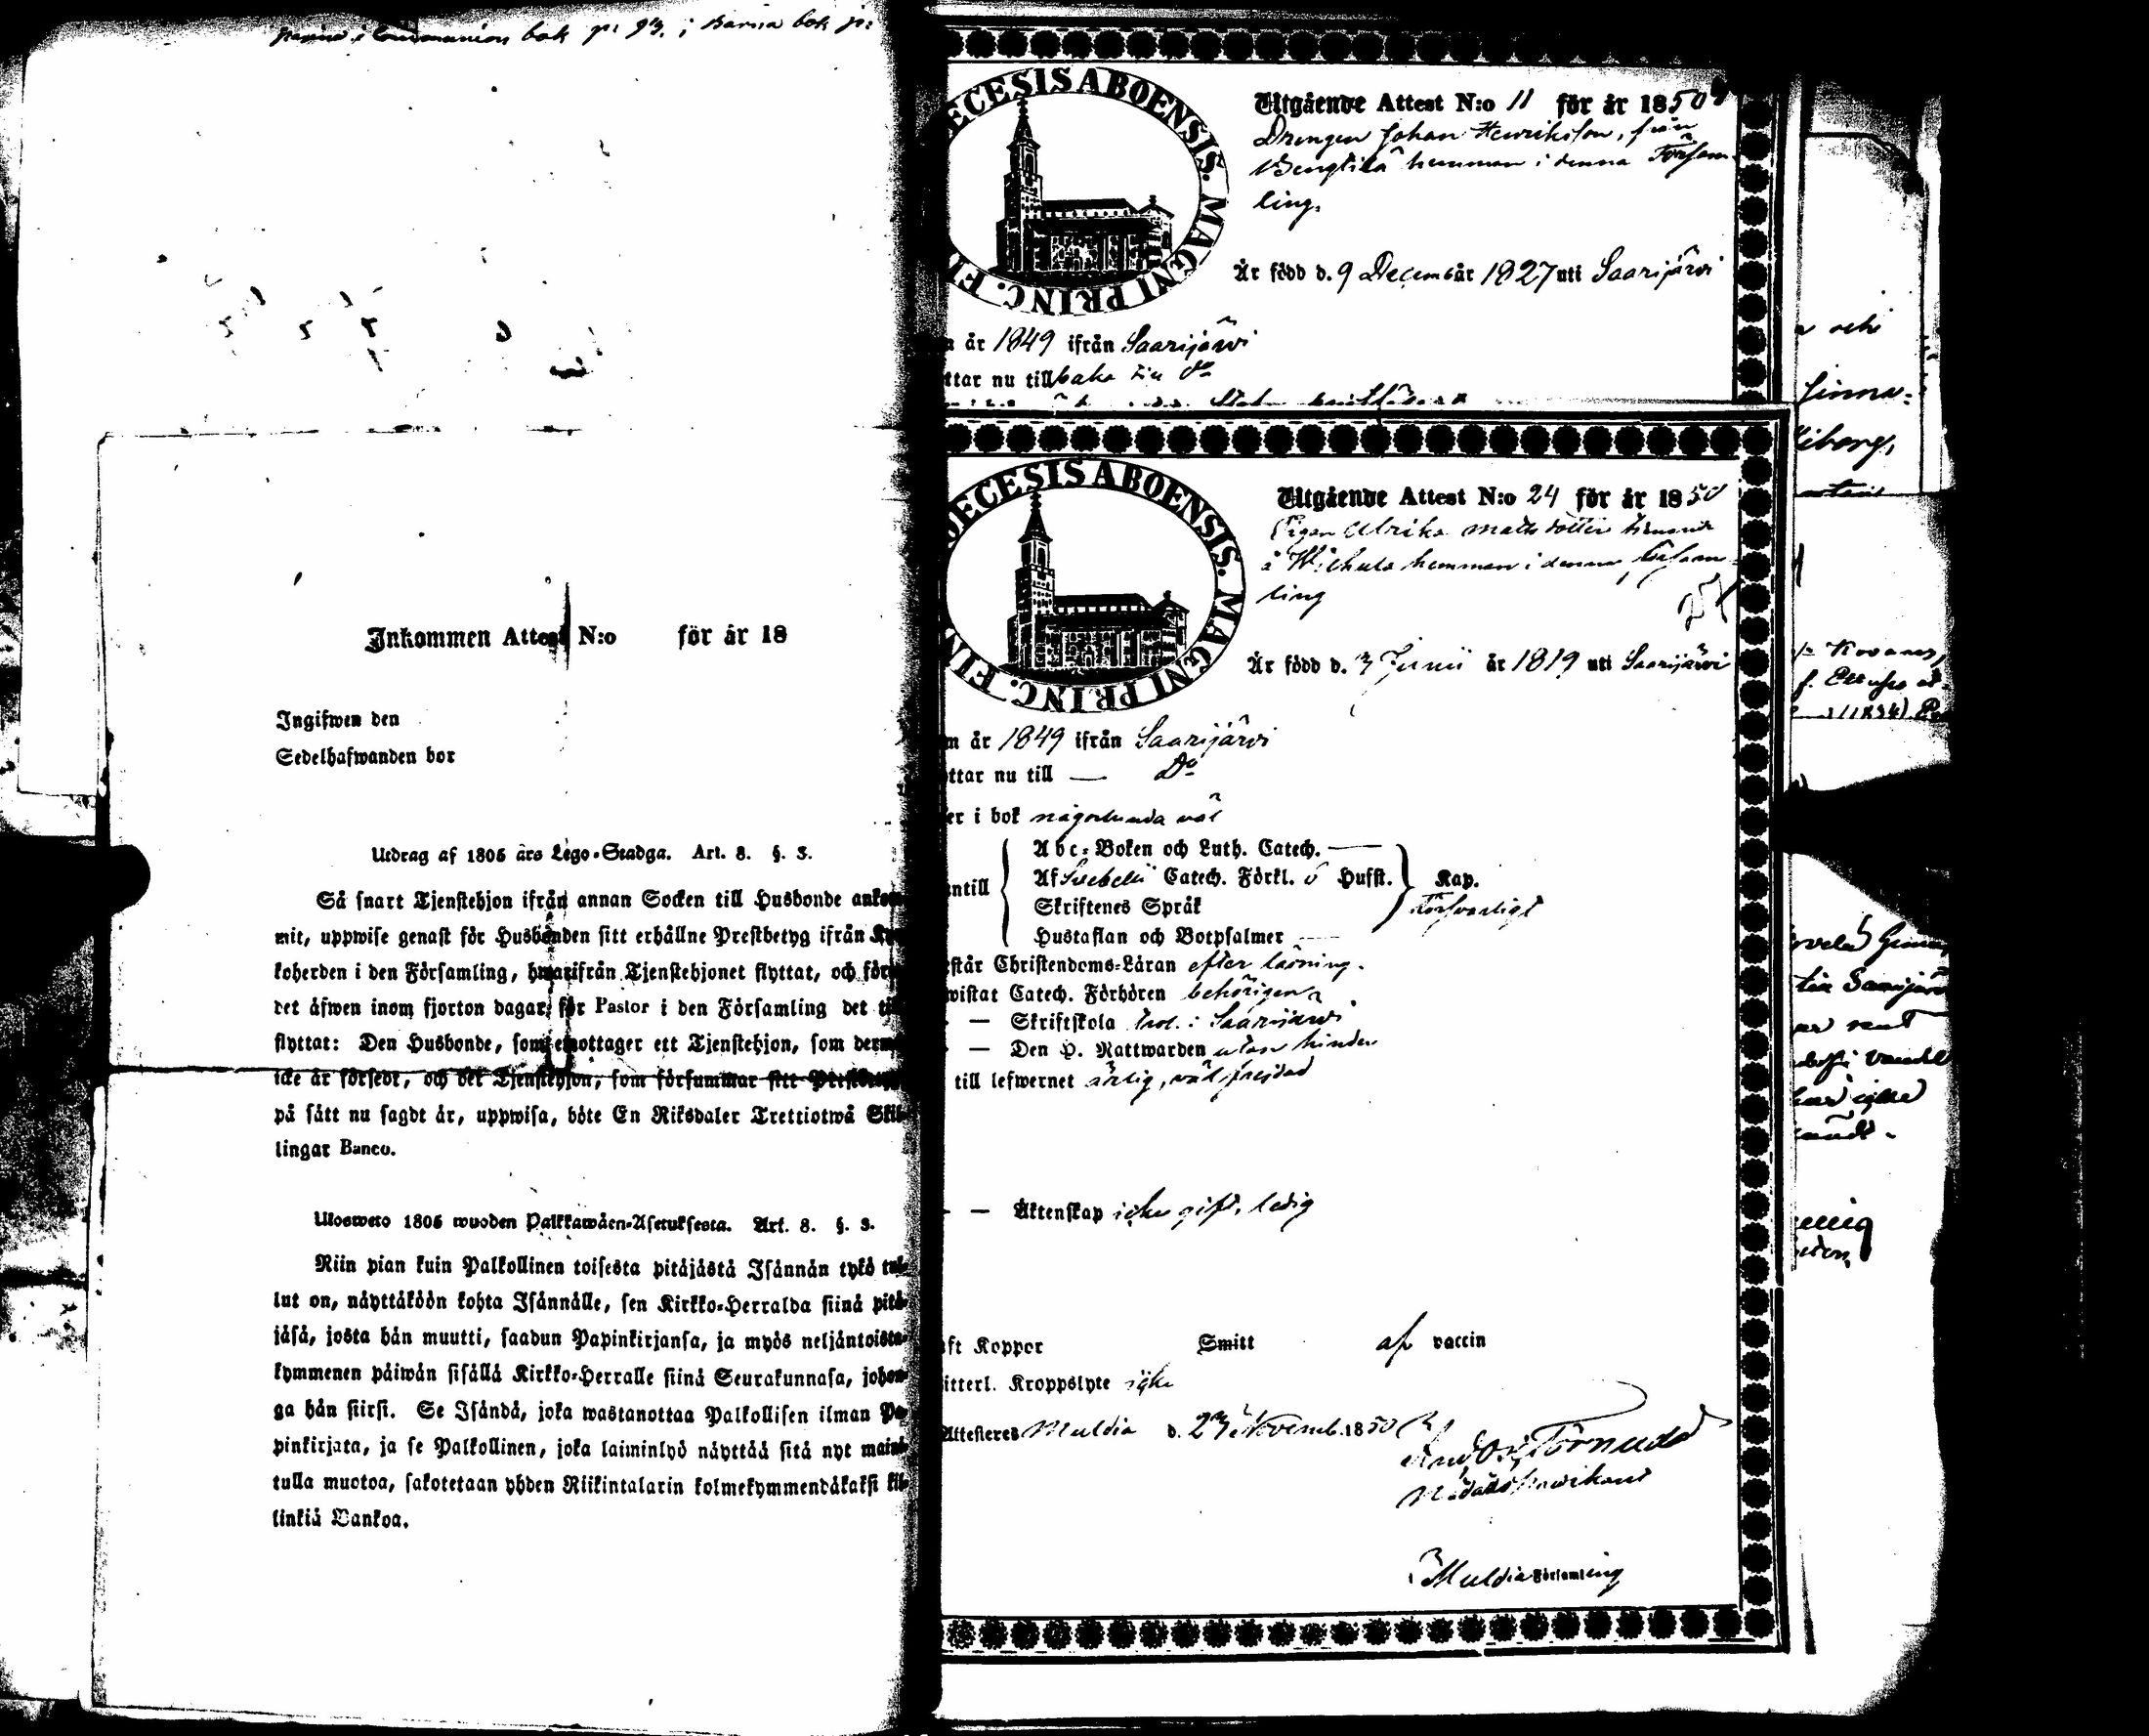 Communion bok p: 93. ; Barna bok p:
Inkommen Attest N:o för år 18
Ingifwen den
Sedelhafwanden bor
Utdrag af 1805 års Lego-Stadga. Art. 8. §. 3.
Så snart Tjenstehjon ifrån annan Socken till Husbonde ankom-
mit, uppwise genast för Husbonden sitt erhållne Prestbetyg ifrån Kyr-
koherden i den Församling, hwarifrån Tjenstehjonet flyttat, och före
det äfwen inom fjorton dagar, för Pastor i den Församling det till
flyttat: Den Husbonde, som emottager ett Tjenstehjon, som dermed
icke är försedt, och det Tjenstehjon, som försummar sitt Prestbetyg
på sått nu sagdt är, uppwisa, böte En Riksdaler Trettiotwå Skil-
lingar Banco.
Ulosweto 1805 wuoden Palkkawäen-Asetuksesta. Art. 8. §. 3.
Niin pian kuin Palkollinen toisesta pitäjästä Isännän tykö tul-
lut on, näyttäköön kohta Isännälle, sen Kirkko-Herralda siinä pitä-
jäsä, josta hän muutti, saadun Papinkirjansa, ja myös neljäntoista-
kymmenen päiwän sisällä Kirkko-Herralle siinä Seurakunnasa, johon-
ga hän siirsi. Se Isändä, joka wastanottaa Palkollisen ilman Pa-
pinkirjata, ja se Palkollinen, joka laiminlyö näyttää sitä nyt maini-
tulla muotoa, sakotetaan yhden Riikintalarin kolmekymmendäkaksi kil-
linkiä Bankoa.
ECESIS ABOENSIS. MAGNI PRINC. FI
Utgående Attest N:o 11 för år 1850
Drengen Johan Henriksson, från
Bengtilä hemman i denna Försam-
ling.
Är född d. 9 Decemb år 1827 uti Saarijärvi
år 1849 ifrån Saarijärvi
ttar nu tillbaka till Do
OECESIS ABOENSIS. MAGNI PRINC. FIN
Utgående Attest N:o 24 för år 1850
Pigan Ulrika Matts dotter
å hemman i denna Försam-
ling
Är född d. 3 Junii år 1819 uti Saarijärvi
m år 1849 ifrån Saarijärvi
ottar nu till — Do
er i bok någorlunda väl
Abc-Boken och Luth. Catech. —
ntill Af Svebelii Catech. Förkl. o Husst. Kap.
Skriftenes Språk Försvarligt
Hustaflan och Botpsalmer —
står Christendoms-Läran efter läsning.
wistat Catech. Förhören behörigen
— Skriftskola Saarijärvi
— Den H. Nattwarden utan hinder
till lefwernet ärlig, väl frejdad
— — Äktenskap icke gift, ledig
ft Koppor Smitt af vaccin
itterl. Kroppslyte icke
Attesteres Muldia d. 23 Novemb. 1850
Törnudd
Muldia Församling